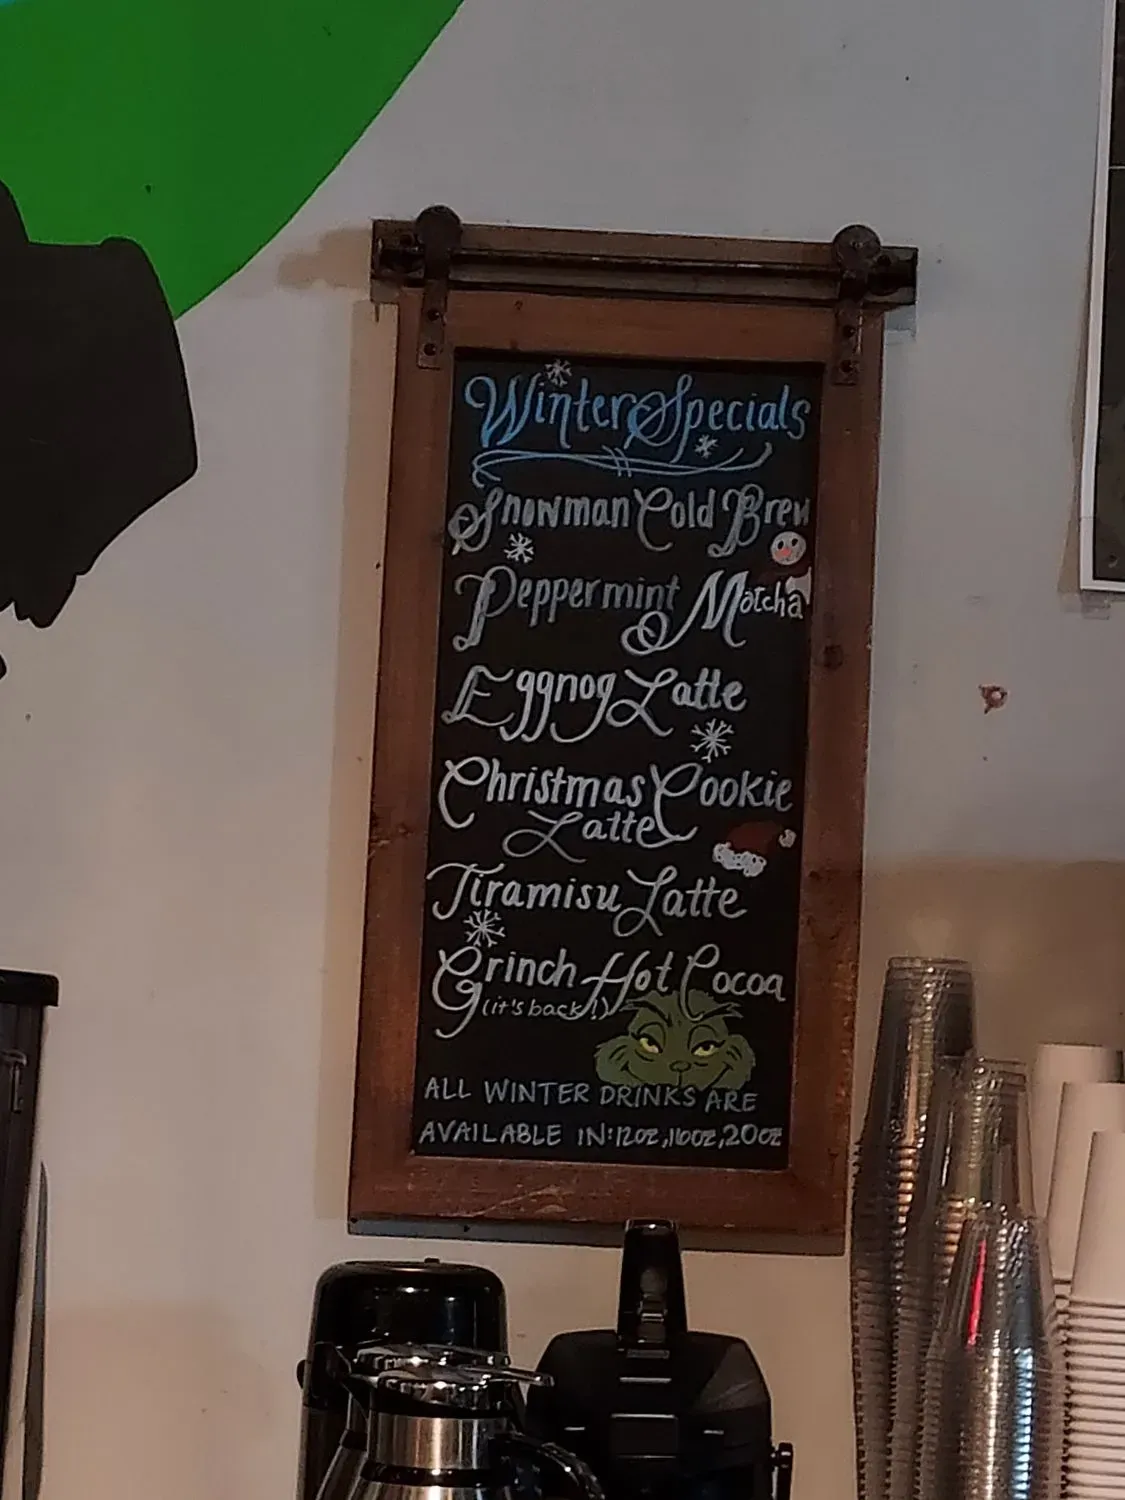 Winter Specials
Snowman Cold Brew
Peppermint Matcha
Eggnog Latte
Christmas Cookie
Latte
Tiramisu Latte
Grinch Hot Cocoa
(it's back!)
ALL WINTER DRINKS ARE
AVAILABLE IN: 12oz, 16oz, 20oz